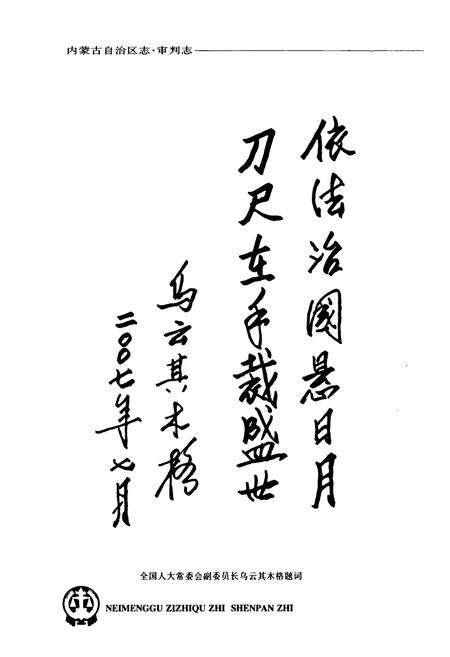 内蒙古自治区志·审判志
依法治国悬日月
刀尺在手裁盛世
乌云其木格
二〇〇七年七月
全国人大常委会副委员长乌云其木格题词
NEIMENGGU ZIZHIQU ZHI SHENPAN ZHI